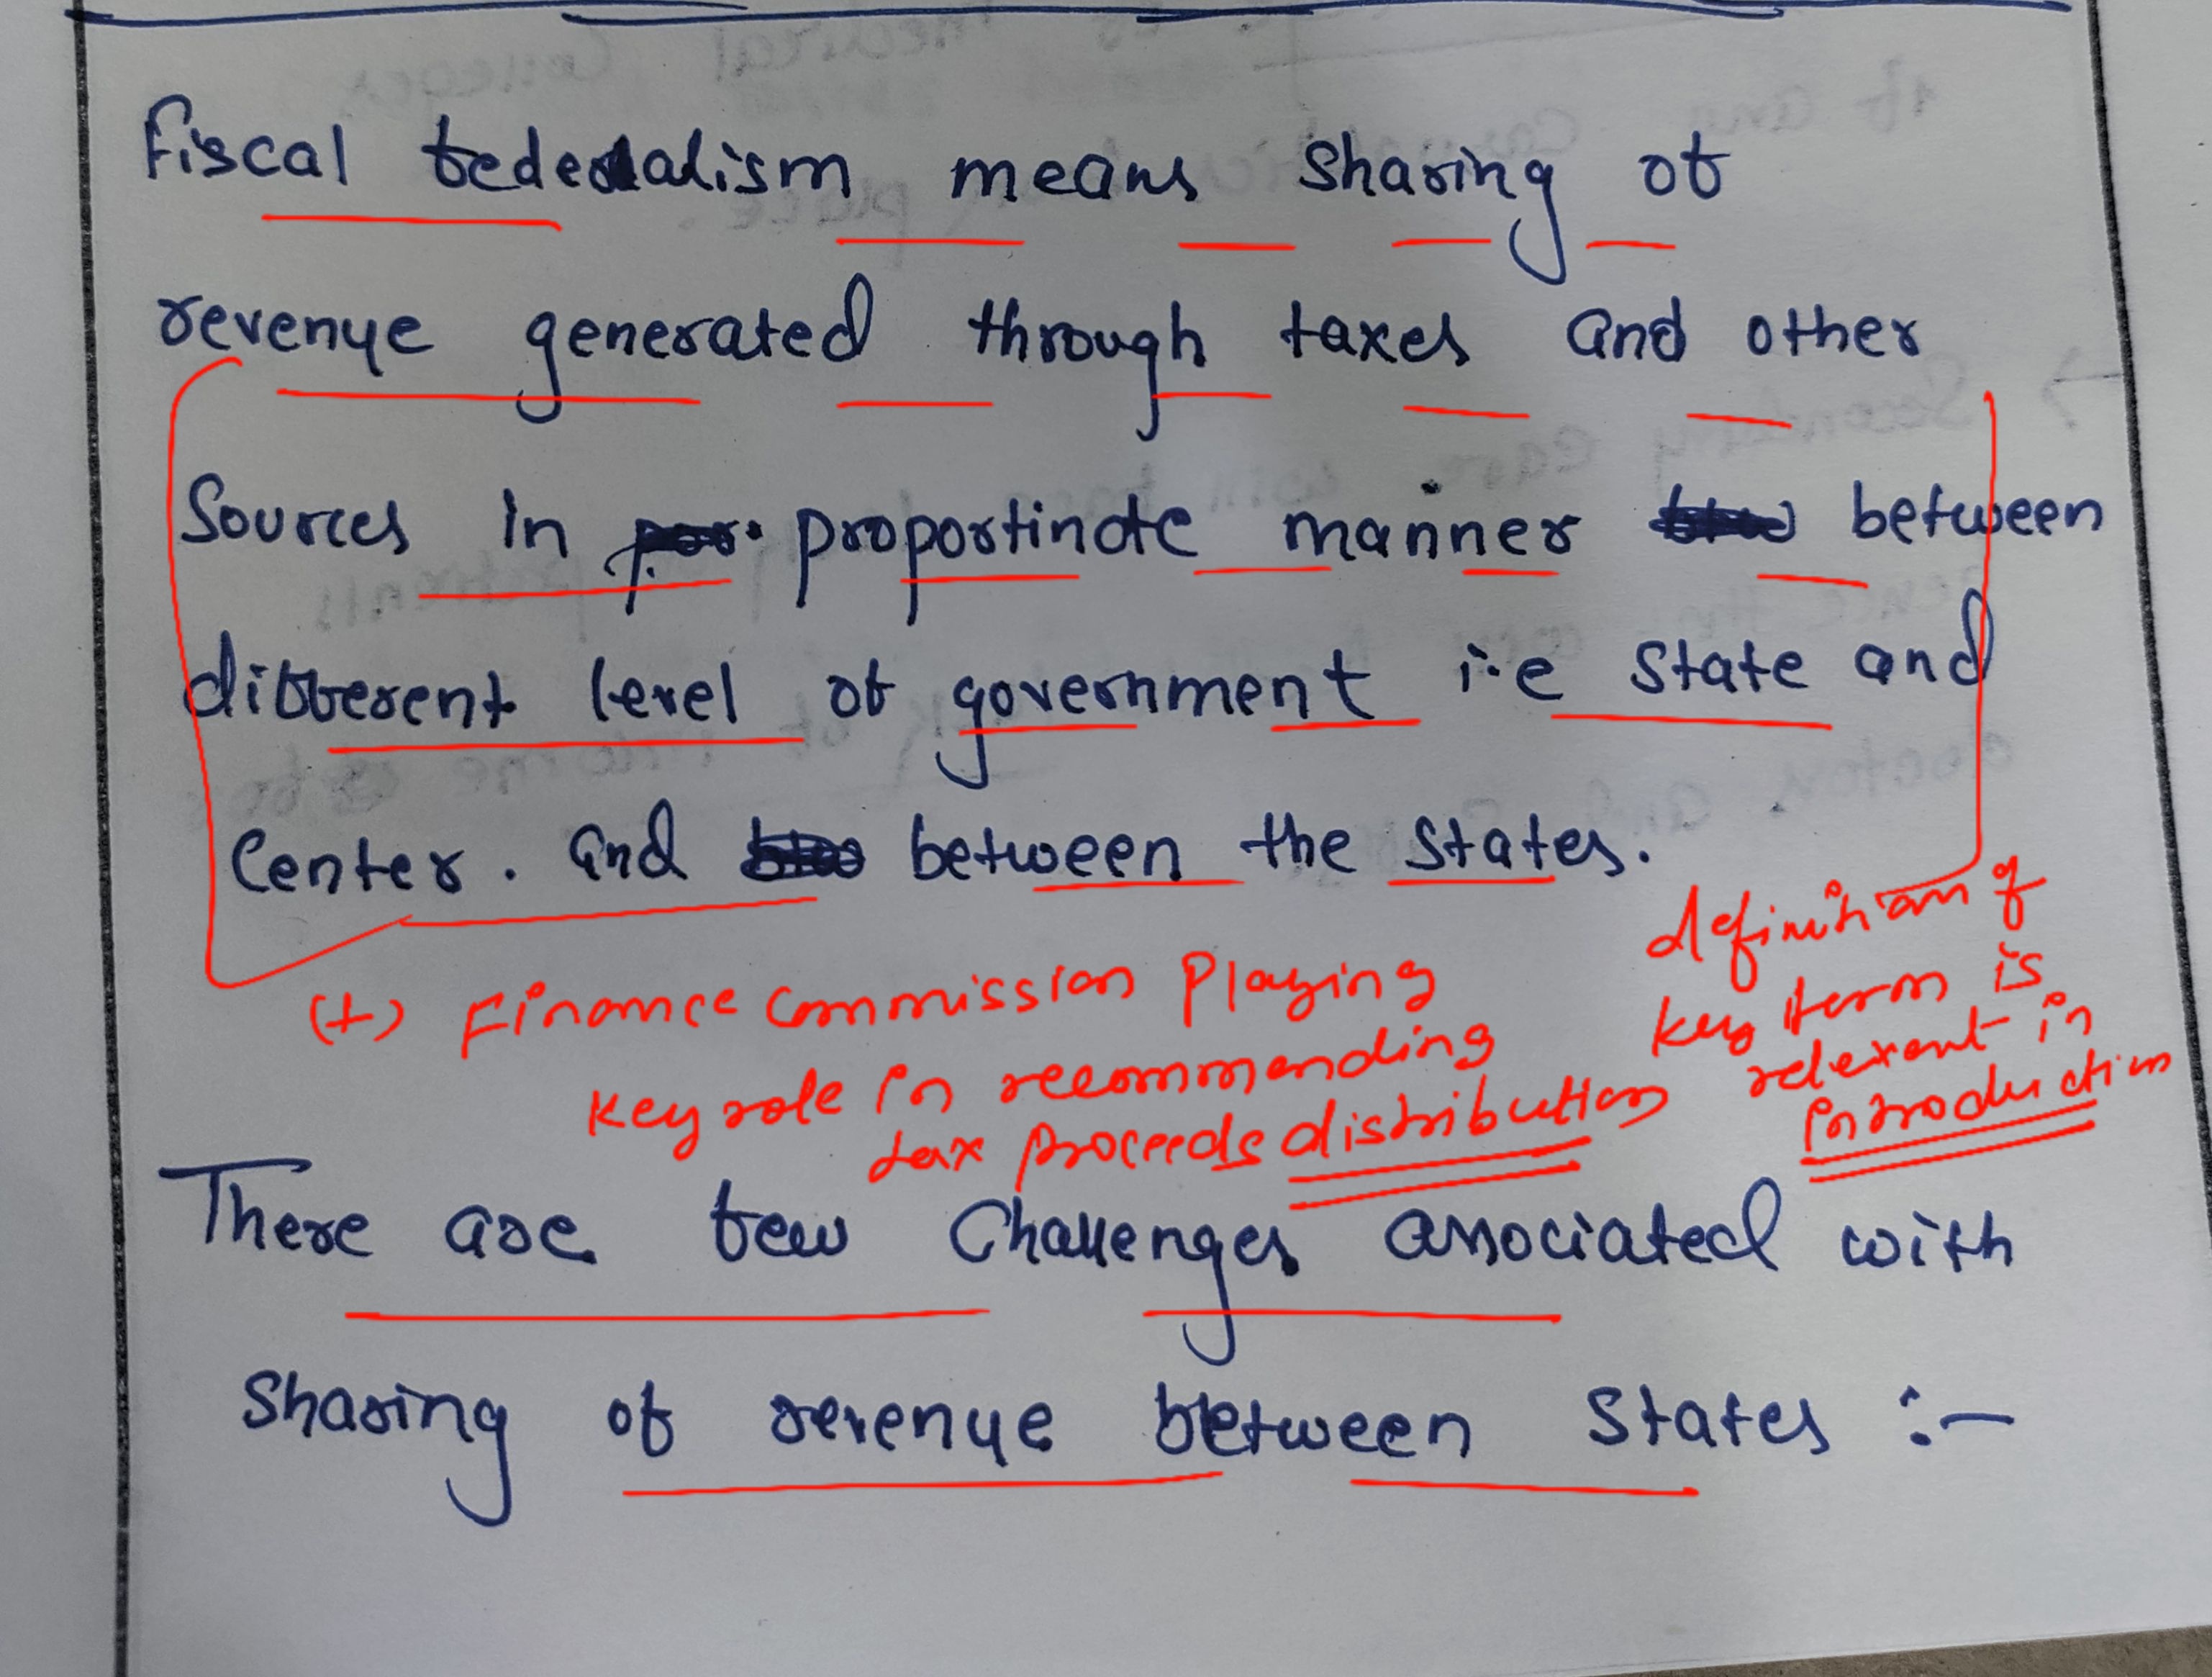 Fiscal federalism means sharing of
revenue generated through taxes and other
Sources in proportinate manner between
different level of government i.e State and
Center. and between the States.
(+) Finance Commission Playing
key role in recommending
tax proceeds distribution
definition of
key term is
relevant in
introduction
There are few Challenges associated with
Sharing of revenue between States :-